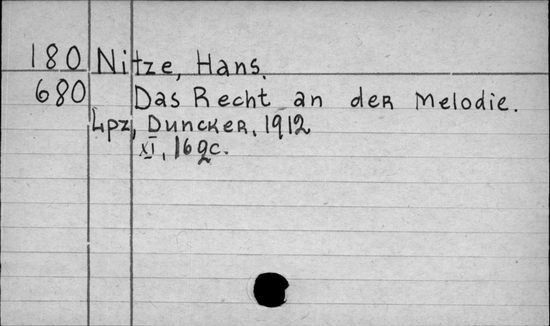 180 Nitze, Hans.
680 Das Recht an der Melodie.
Lpz, Duncker, 1912
XI, 162c.